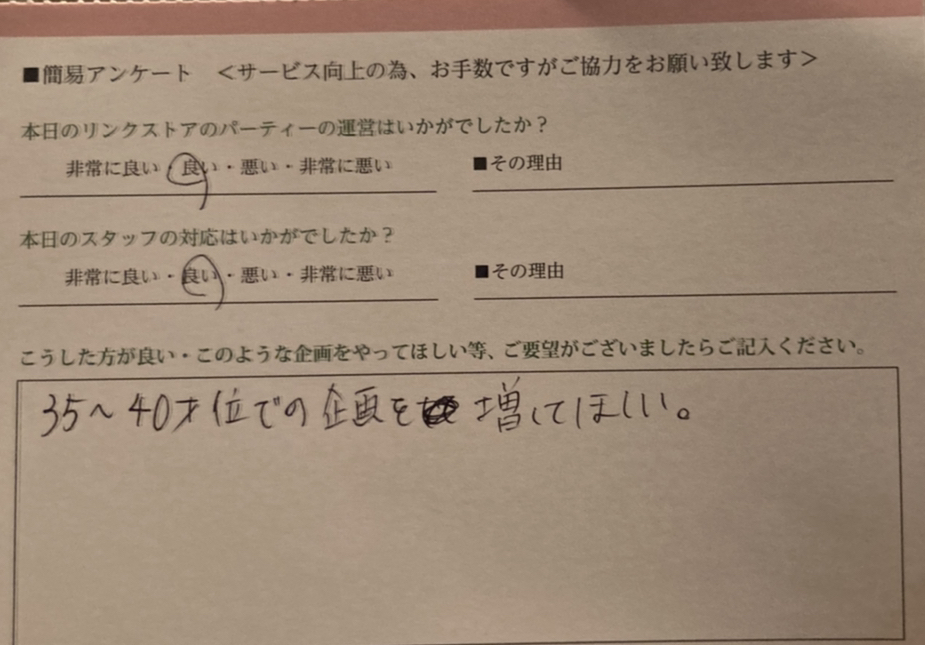 ■簡易アンケート　＜サービス向上の為、お手数ですがご協力をお願い致します＞
本日のリンクストアのパーティーの運営はいかがでしたか？
非常に良い・良い・悪い・非常に悪い　■その理由
本日のスタッフの対応はいかがでしたか？
非常に良い・良い・悪い・非常に悪い　■その理由
こうした方が良い・このような企画をやってほしい等、ご要望がございましたらご記入ください。
35～40才位での企画を増してほしい。